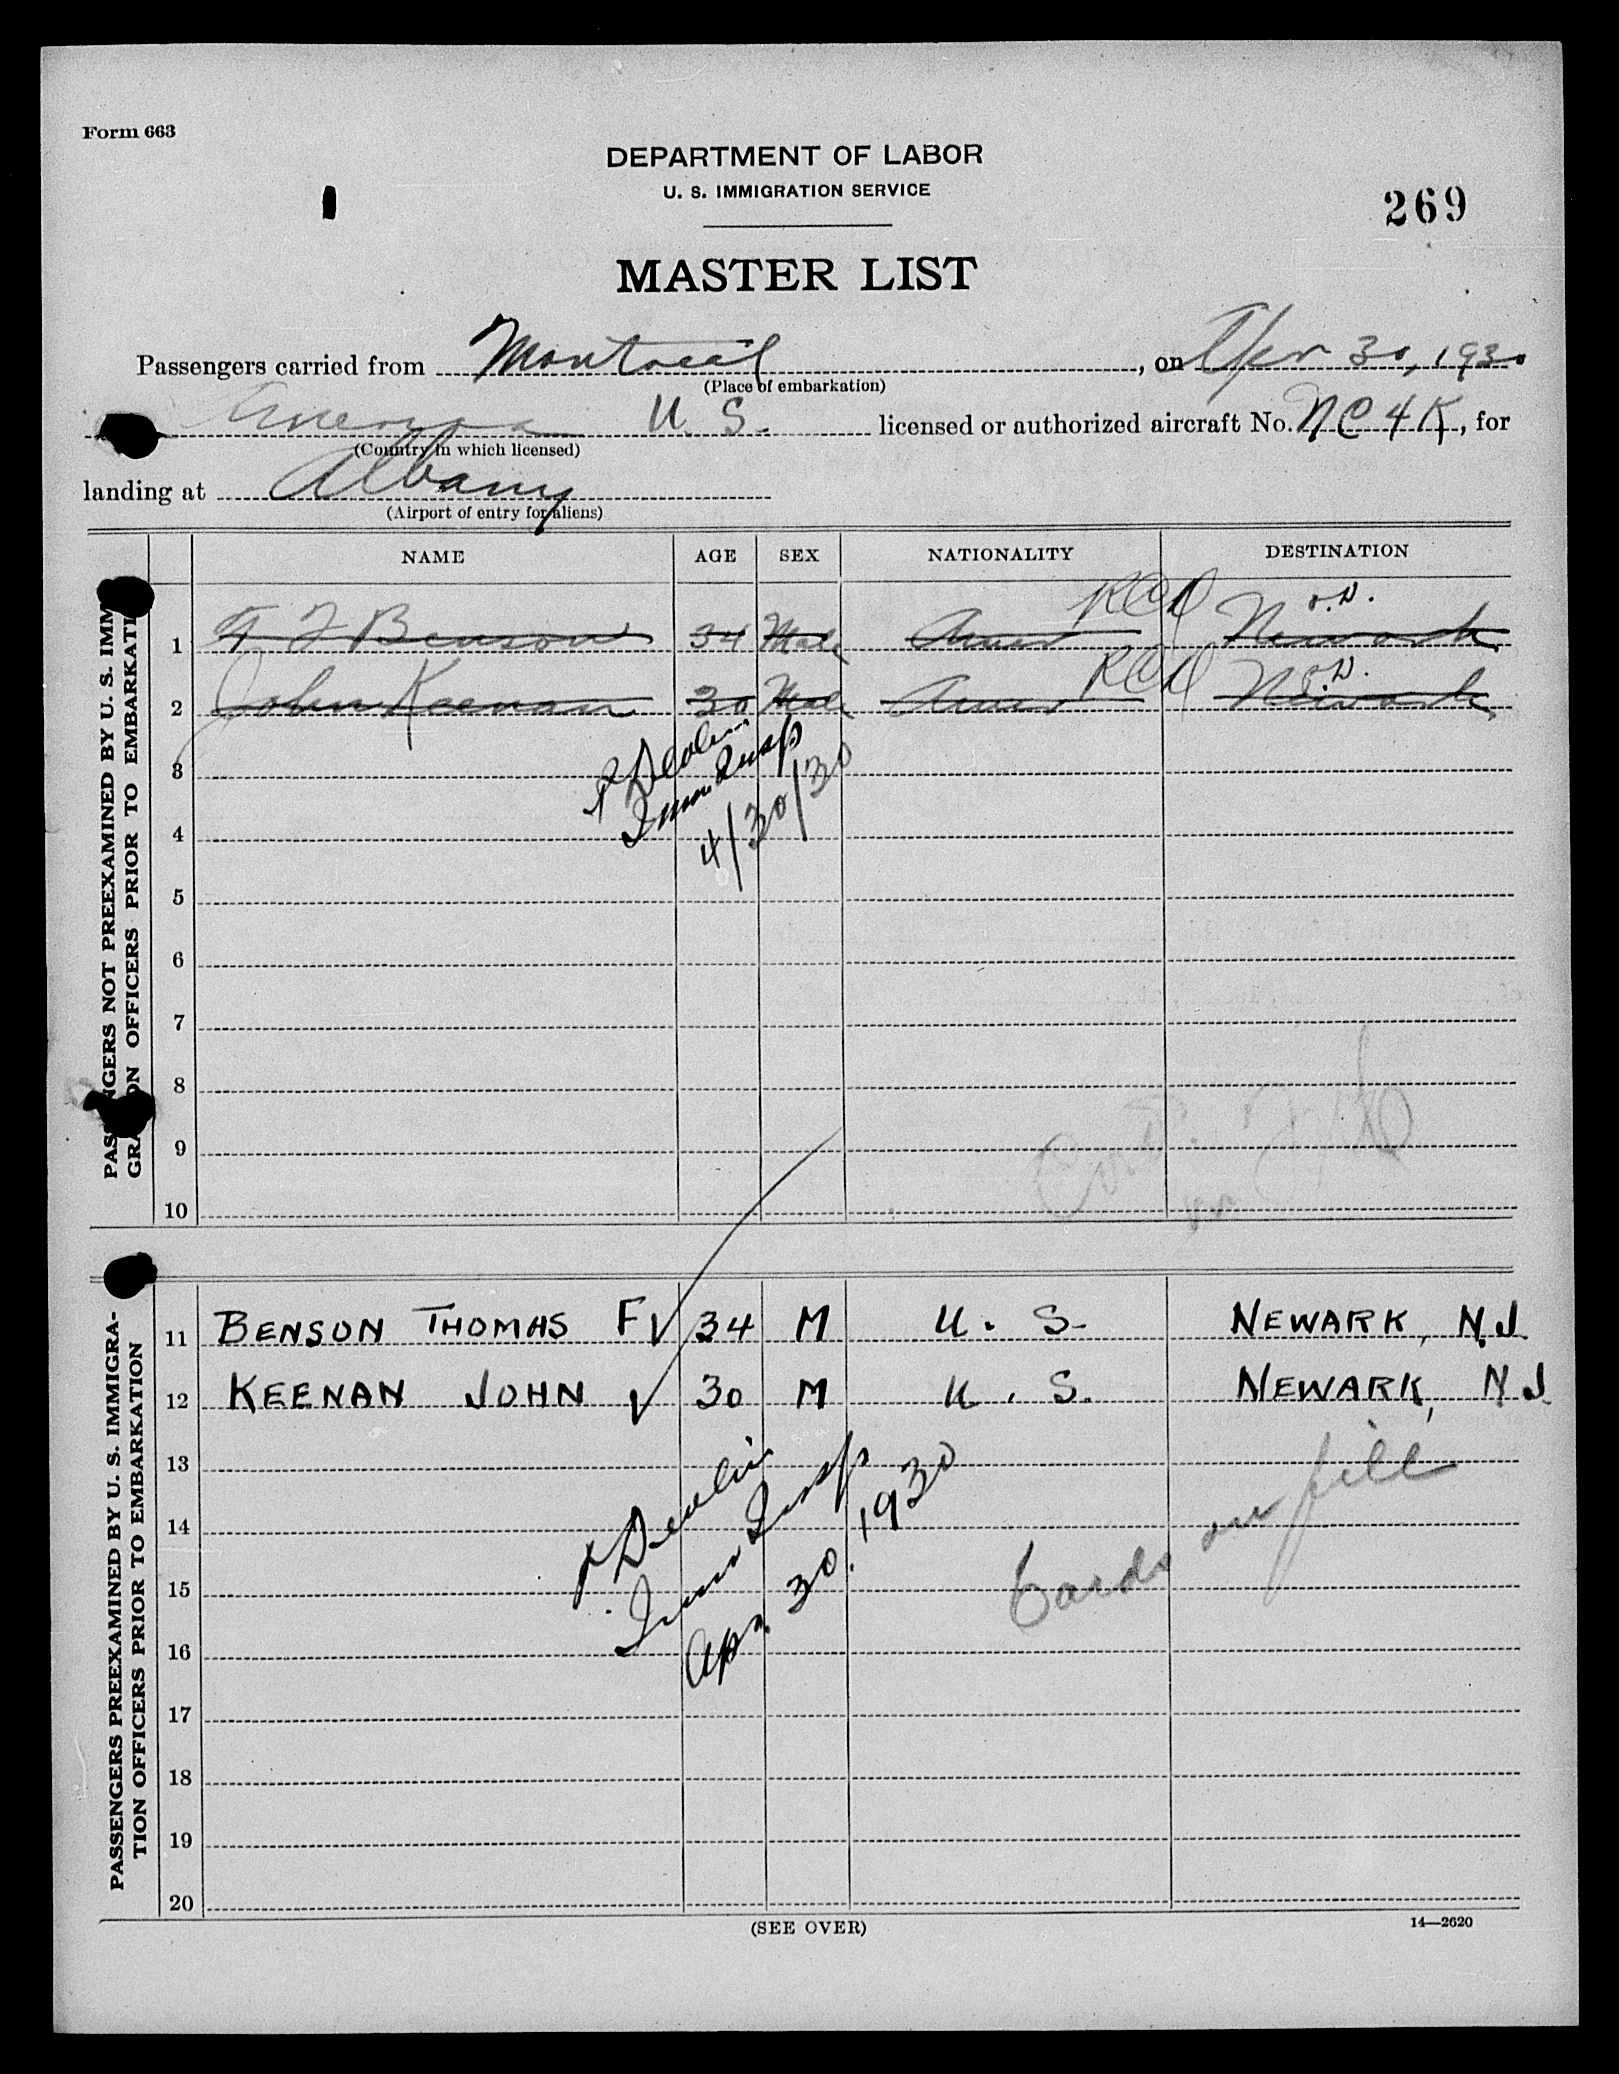 Form 663
DEPARTMENT OF LABOR
U. S. IMMIGRATION SERVICE
269
MASTER LIST
Passengers carried from Montreal, on Apr 30, 1930
(Place of embarkation)
America U. S. licensed or authorized aircraft No. NC4K, for
(Country in which licensed)
landing at Albany
(Airport of entry for aliens)
NAME AGE SEX NATIONALITY DESTINATION
PASSENGERS NOT PREEXAMINED BY U. S. IMM
GRA ON OFFICERS PRIOR TO EMBARKATI
1 T F Benson 34 Male Amer Newark
2 John Keenan 30 Male Amer Newark
3
P Devlin
Imm. Insp
4/30/30
4
5
6
7
8
9
10
PASSENGERS PREEXAMINED BY U. S. IMMIGRA-
TION OFFICERS PRIOR TO EMBARKATION
11 BENSON THOMAS F 34 M U. S. NEWARK, N.J.
12 KEENAN JOHN 30 M U. S. NEWARK, N J.
13
P Devlin
Imm Insp
Apr. 30. 1930
Cards on file
14
15
16
17
18
19
20
(SEE OVER)
14—2620